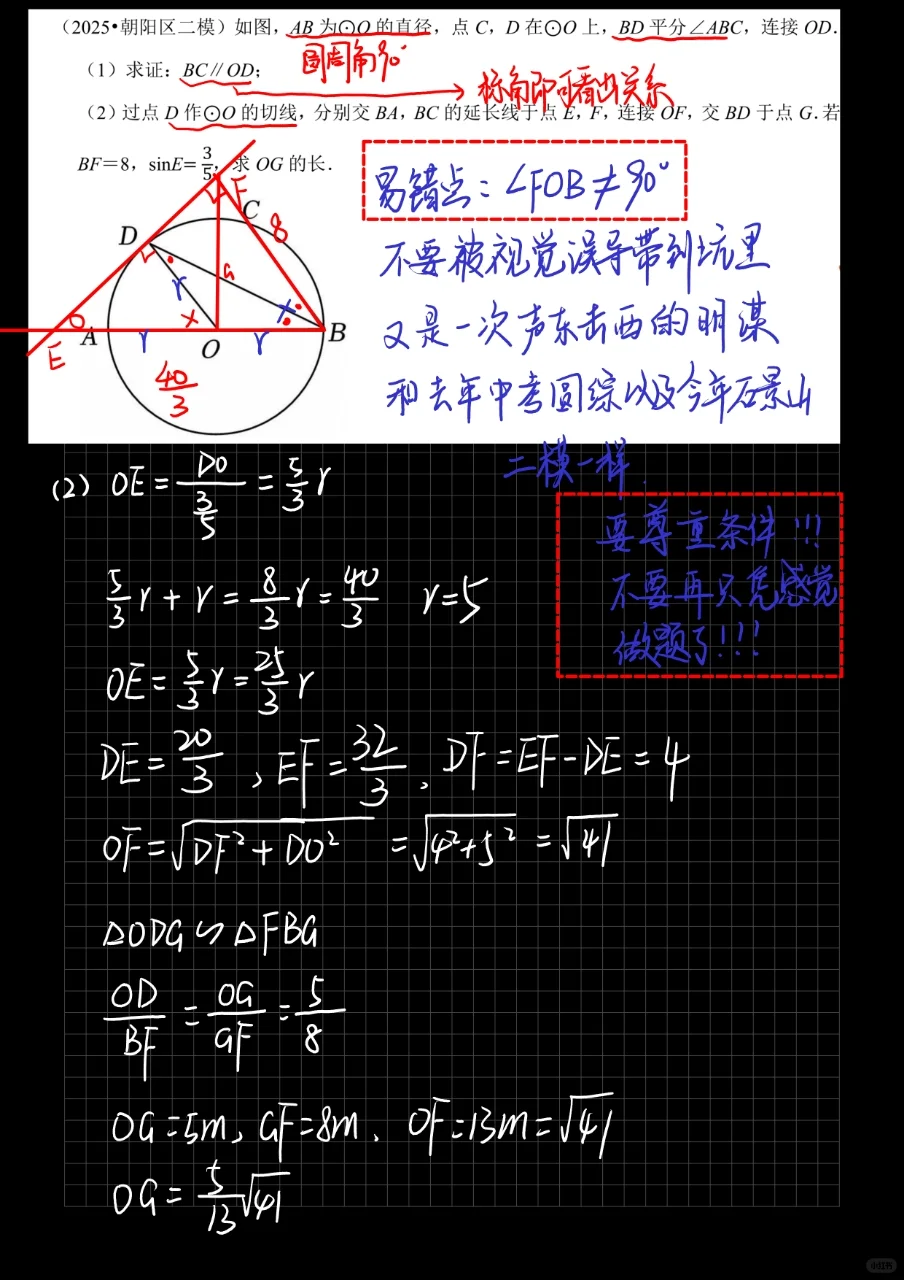 (2025•朝阳区二模)如图，AB为⊙O的直径，点C，D在⊙O上，BD平分∠ABC，连接OD.
圆周角90°
(1)求证：BC∥OD;
标角即可看出关系
(2)过点D作⊙O的切线，分别交BA，BC的延长线于点E，F，连接OF，交BD于点G.若
BF=8，sinE=3/5，求OG的长.
易错点：∠FOB≠90°
不要被视觉误导带到坑里
又是一次声东击西的明谋
和去年中考圆综以及今年石景山
二模一样.
F
C
8
D
G
r
x
E
A
r
x
O
r
B
40/3
要尊重条件!!!
不要再只凭感觉
做题了!!!
(2) OE=DO/(3/5)=5/3r
5/3r+r=8/3r=40/3 r=5
OE=5/3r=25/3r
DE=20/3，EF=32/3，DF=EF-DE=4
OF=√(DF²+DO²)=√(4²+5²)=√41
△ODG∽△FBG
OD/BF=OG/GF=5/8
OG=5m，GF=8m、OF=13m=√41
OG=5/13√41
小红书